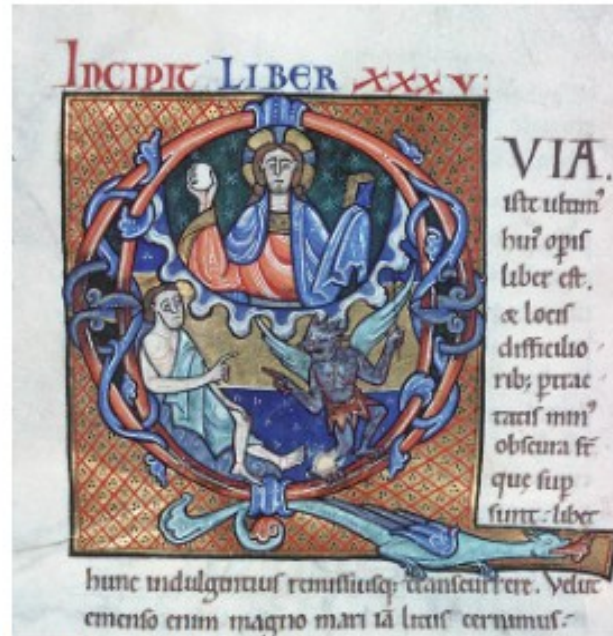 INCIPIT LIBER XXXV:
VIA.
iste ultim⁹
hui⁹ opis
liber est.
& locis
difficilio
rib; ptrac
tatis min⁹
obscura st̄
que sup
sunt: libet
hunc indulgentius remissiusq; transcurrere. Velut
emenso enim magno mari iā litus cernimus: